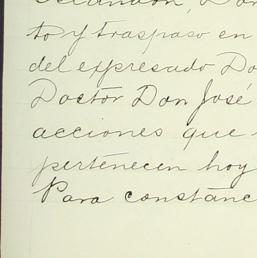 Escandon, Don
to y traspaso en
del expresado Do
Doctor Don José
acciones que
pertenecen hoy
Para constanc